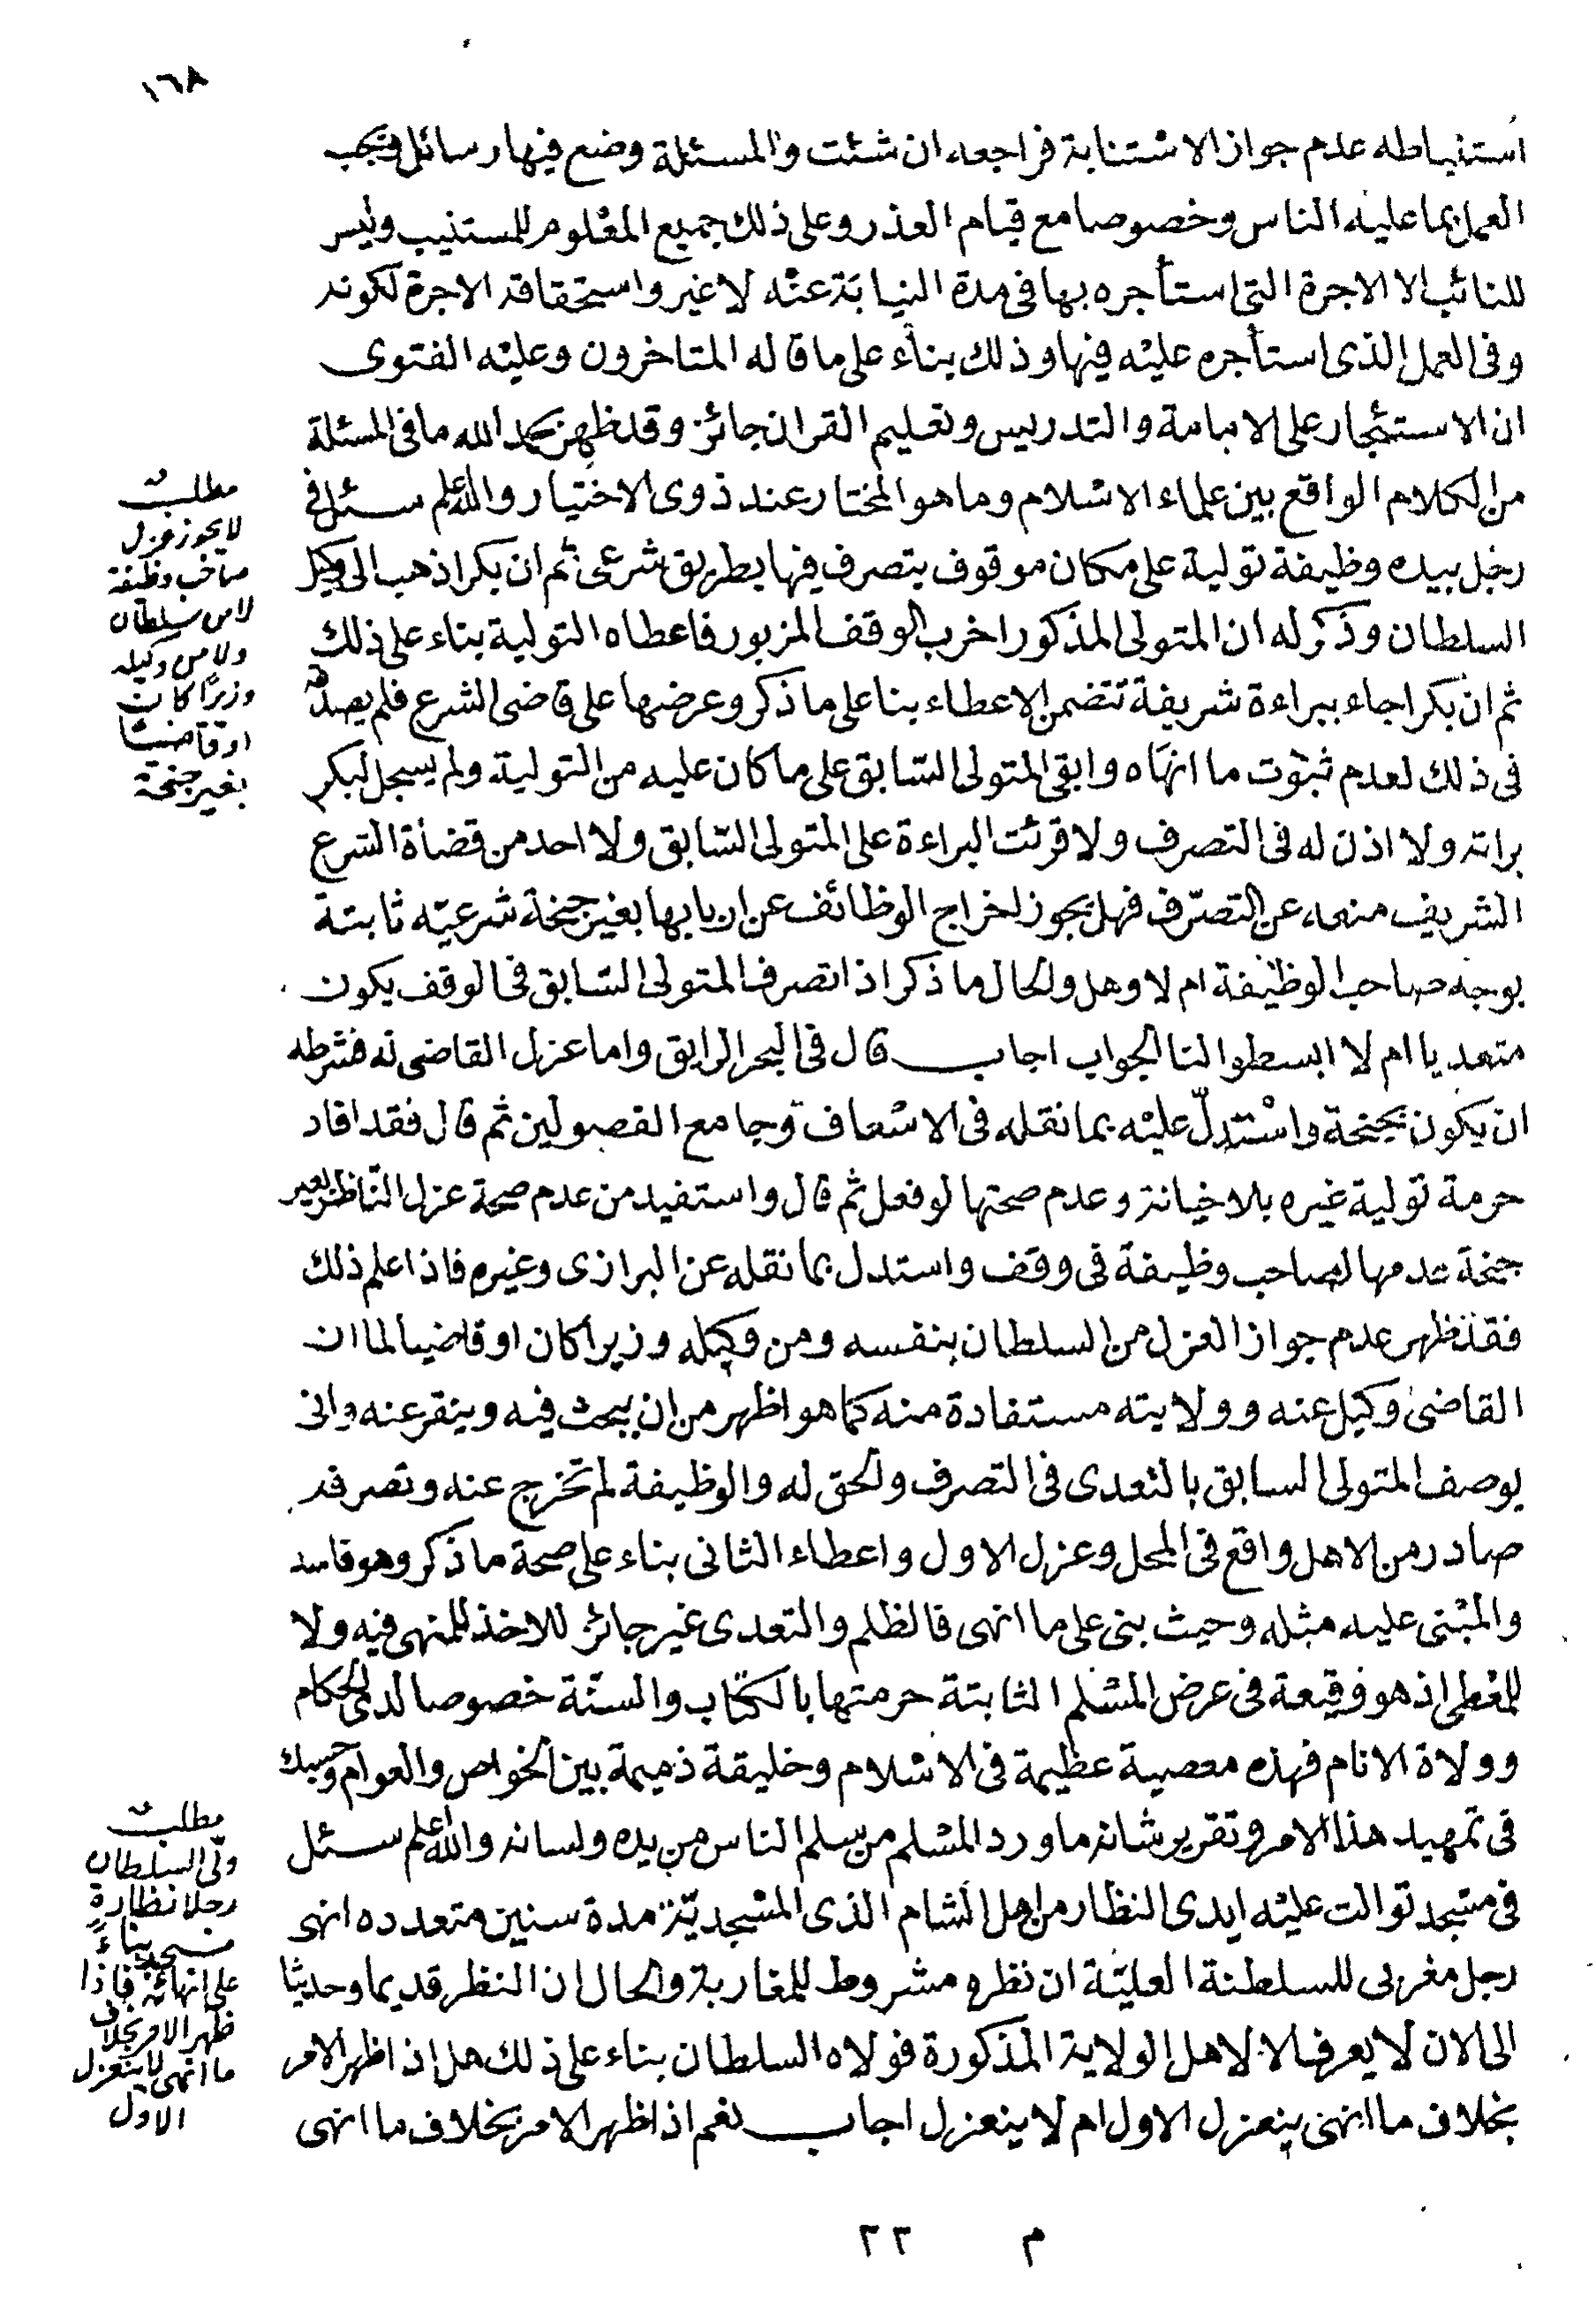 ١٦٨
استنباطه عدم جواز الاستنابة فراجعه ان شئت والمسئلة وضع فيها رسائل فيجب
العمل بما عليه الناس وخصوصا مع قيام العذر وعلى ذلك جميع المعلوم للمستنيب وليس
للنائب الا الاجرة التى استأجره بها فى مدة النيابة عنه لا غير واستحقاقه الاجرة لكونه
وفى العمل الذى استأجره عليه فيها وذلك بناء على ما قاله المتاخرون وعليه الفتوى
ان الاستئجار على الامامة والتدريس وتعليم القران جائز وقد ظهر بحمد الله ما فى المسئلة
من الكلام الواقع بين علماء الاسلام وما هو المختار عند ذوى الاختيار والله اعلم سئل فى
رجل بيده وظيفة تولية على مكان موقوف يتصرف فيها بطريق شرعى ثم ان بكرا ذهب الى وكيل
السلطان وذكر له ان المتولى المذكور اخرب الوقف المزبور فاعطاه التولية بناء على ذلك
ثم ان بكرا جاء ببراءة شريفة تتضمن الاعطاء بنا على ما ذكر وعرضها على قاضى الشرع فلم يصدقه
فى ذلك لعدم ثبوت ما انهاه وابقى المتولى السابق على ما كان عليه من التولية ولم يسجل لبكر
براته ولا اذن له فى التصرف ولا قرئت البراءة على المتولى السابق ولا احد من قضاة الشرع
الشريف منعه عن التصرف فهل يجوز اخراج الوظائف عن اربابها بغير جنحة شرعيه ثابتة
بوجه صاحب الوظيفة ام لا وهل والحال ما ذكر اذا تصرف المتولى السابق فى الوقف يكون
متعديا ام لا ابسطوا لنا الجواب اجاب قال فى البحر الرايق واما عزل القاضى له فشرطه
ان يكون بجنحة واستدل عليه بما نقله فى الاسعاف وجامع الفصولين ثم قال فقد افاد
حرمة تولية غيره بلا خيانة وعدم صحتها لو فعل ثم قال واستفيد من عدم صحة عزل الناظر بغير
جنحة عدمها لصاحب وظيفة فى وقف واستدل بما نقله عن البزازى وغيره فاذا علم ذلك
فقد ظهر عدم جواز العزل من السلطان بنفسه ومن وكيله وزيرا كان او قاضيا لما ان
القاضى وكيل عنه وولايته مستفادة منه كما هو اظهر من ان يبحث فيه وينقر عنه وانى
يوصف المتولى السابق بالتعدى فى التصرف والحق له والوظيفة لم تخرج عنه وتصرفه
صادر من الاهل واقع فى المحل وعزل الاول واعطاء الثانى بناء على صحة ما ذكر وهو فاسد
والمبنى عليه مثله وحيث بنى على ما انهى فالظلم والتعدى غير جائز للاخذ للمنهى فيه ولا
للمعطى اذ هو وقيعة فى عرض المسلم الثابتة حرمتها بالكتاب والسنة خصوصا لدى الحكام
وولاة الانام فهذه معصية عظيمة فى الاسلام وخليقة ذميمة بين الخواص والعوام وحسبك
فى تمهيد هذا الامر وتقرير شانه ما ورد المسلم من سلم الناس من يده ولسانه والله اعلم سئل
فى مسجد توالت عليه ايدى النظار من اهل الشام الذى المسجد بها مدة سنين متعدده انهى
رجل مغربى للسلطنة العلية ان نظره مشروط للمغاربة والحال ان النظر قديما وحديثا
الى الان لا يعرف الا لاهل الولاية المذكورة فولاه السلطان بناء على ذلك هل اذا ظهر الامر
بخلاف ما انهى ينعزل الاول ام لا ينعزل اجاب نعم اذا ظهر الامر بخلاف ما انهى
مطلب
لا يجوز عزل
صاحب وظيفة
لا من سلطان
ولا من وكيله
وزيرا كان
او قاضيا
بغير جنحة
مطلب
ولى السلطان
رجلا نظارة
مسجد بناء
على انهائه فاذا
ظهر الامر بخلاف
ما انهى لا ينعزل
الاول
م ٢٢